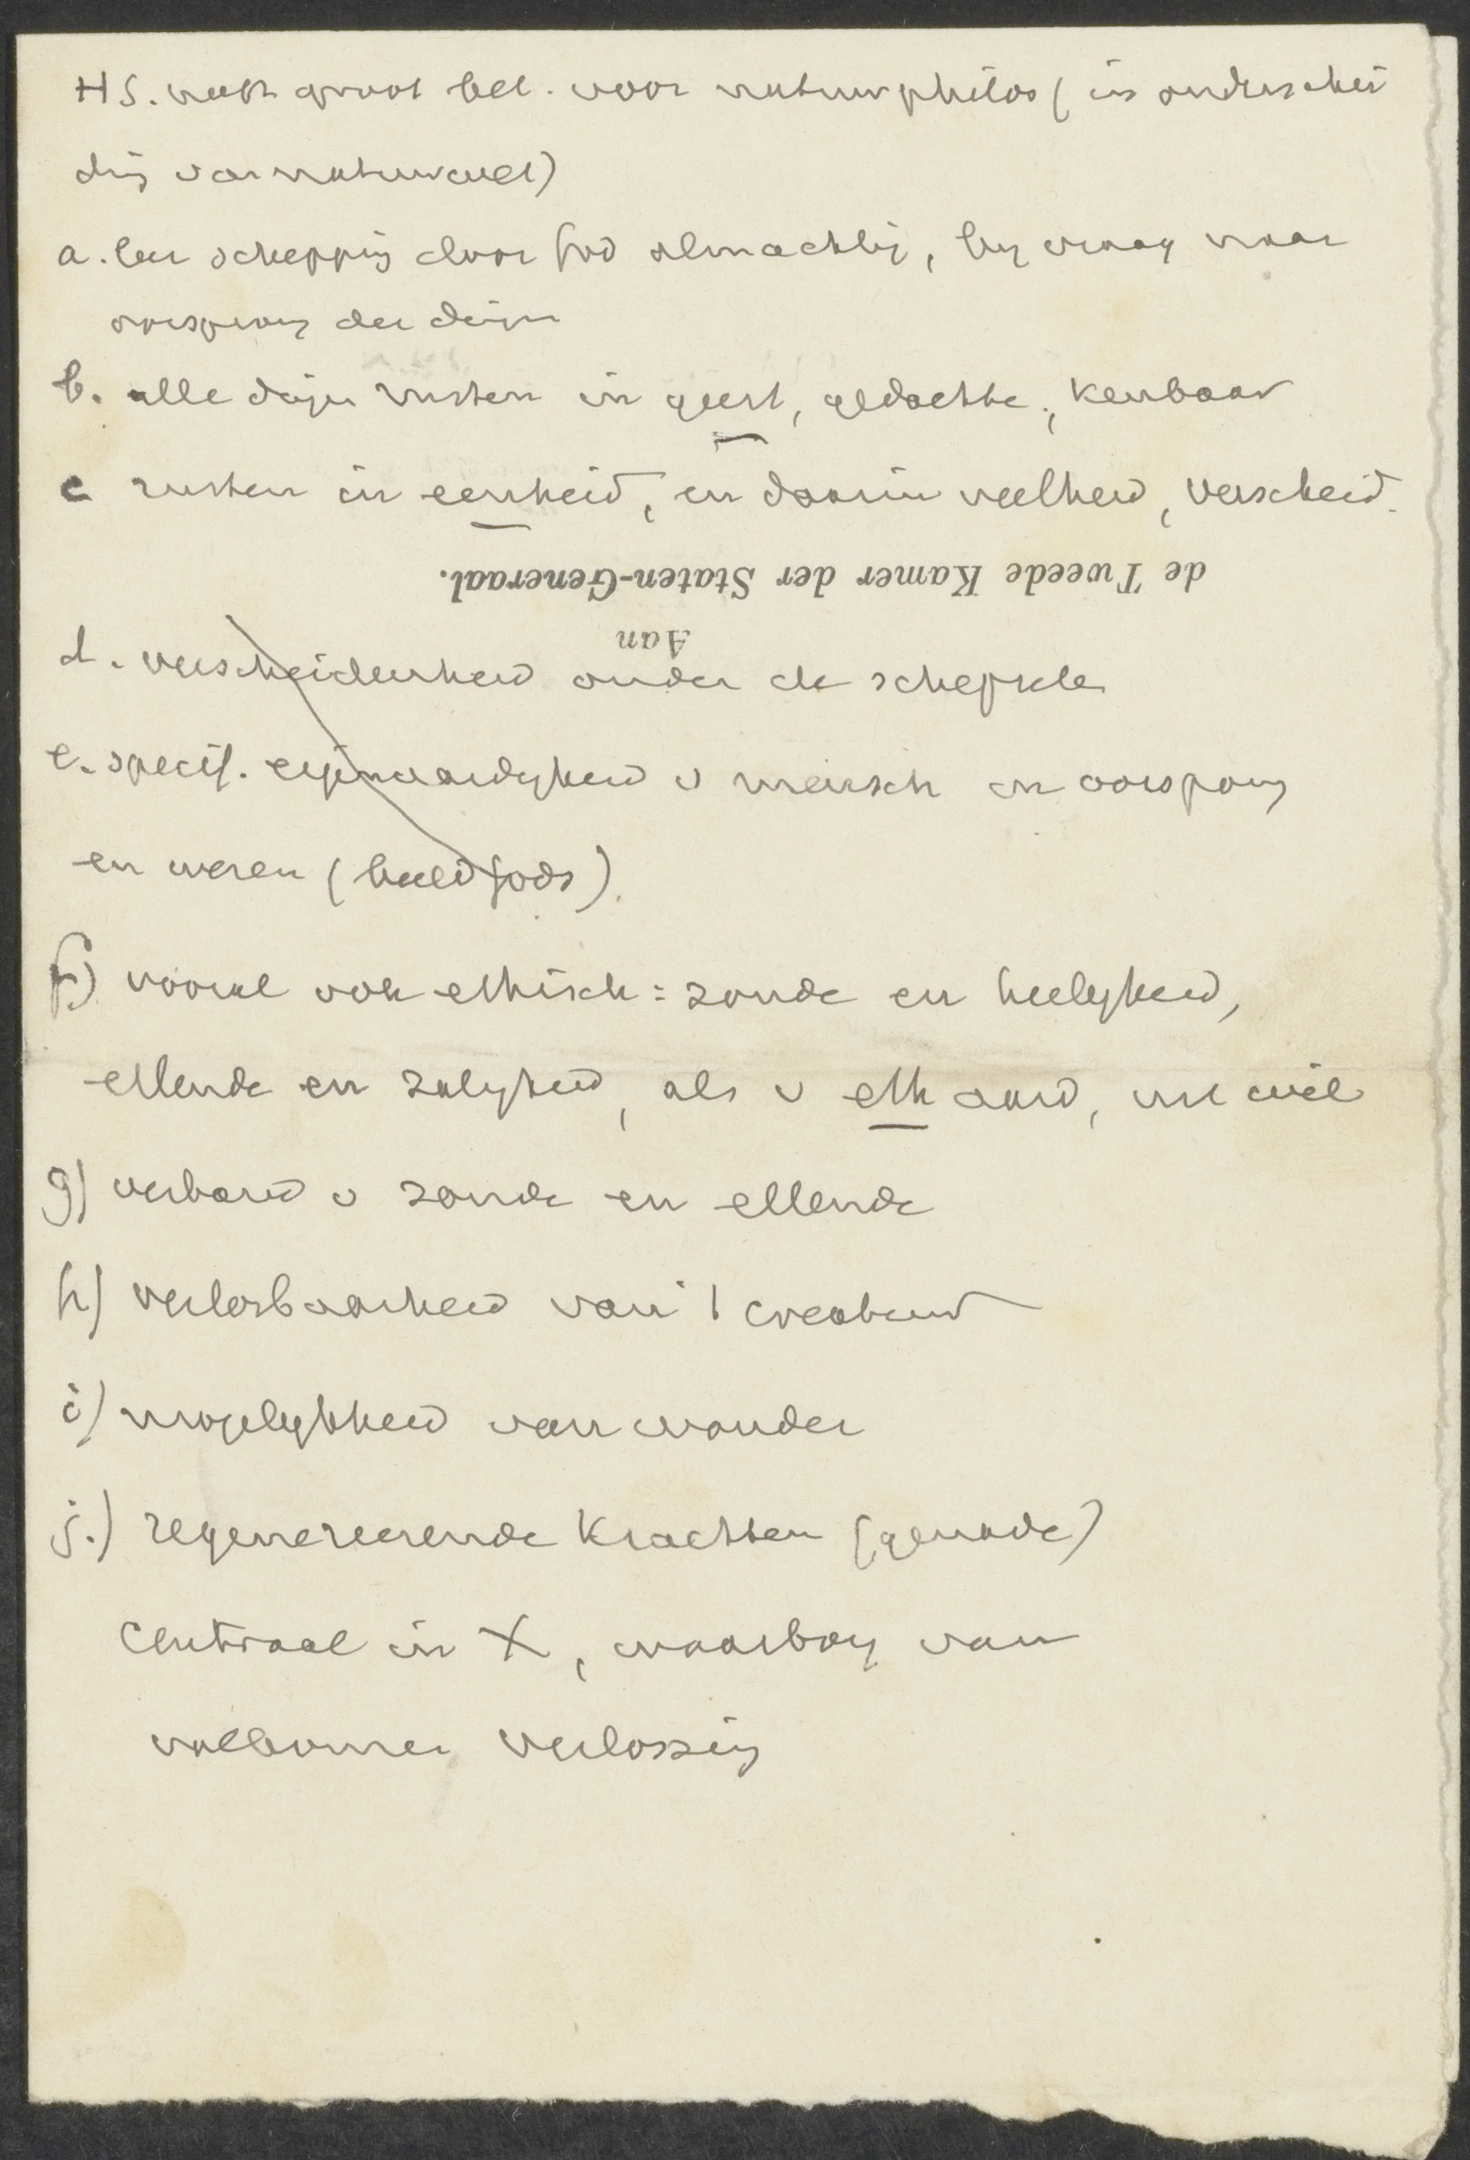 HS. heeft groot bel. voor natuurphilos (in onderschei
ding van natuurwet)
a. leer schepping door God almachtig, bij vraag naar
oorsprong der dingen
b. alle dingen rusten in geest, gedachte, kenbaar
c rusten in eenheid, en daarin veelheid, verscheid.
de Tweede Kamer der Staten-Generaal.
Aan
d. verscheidenheid onder de schepselen
e. specif. eigenaardigheid v mensch in oorsprong
en wezen (beeld Gods).
f) vooral ook ethisch: zonde en heiligheid,
ellende en zaligheid, als v eth aard, uit wil
g) verband v zonde en ellende
h) verlosbaarheid van 't creatuur
i) mogelijkheid van wonder
j.) regenereerende krachten (genade)
centraal in X, waarborg van
volkomen verlossing